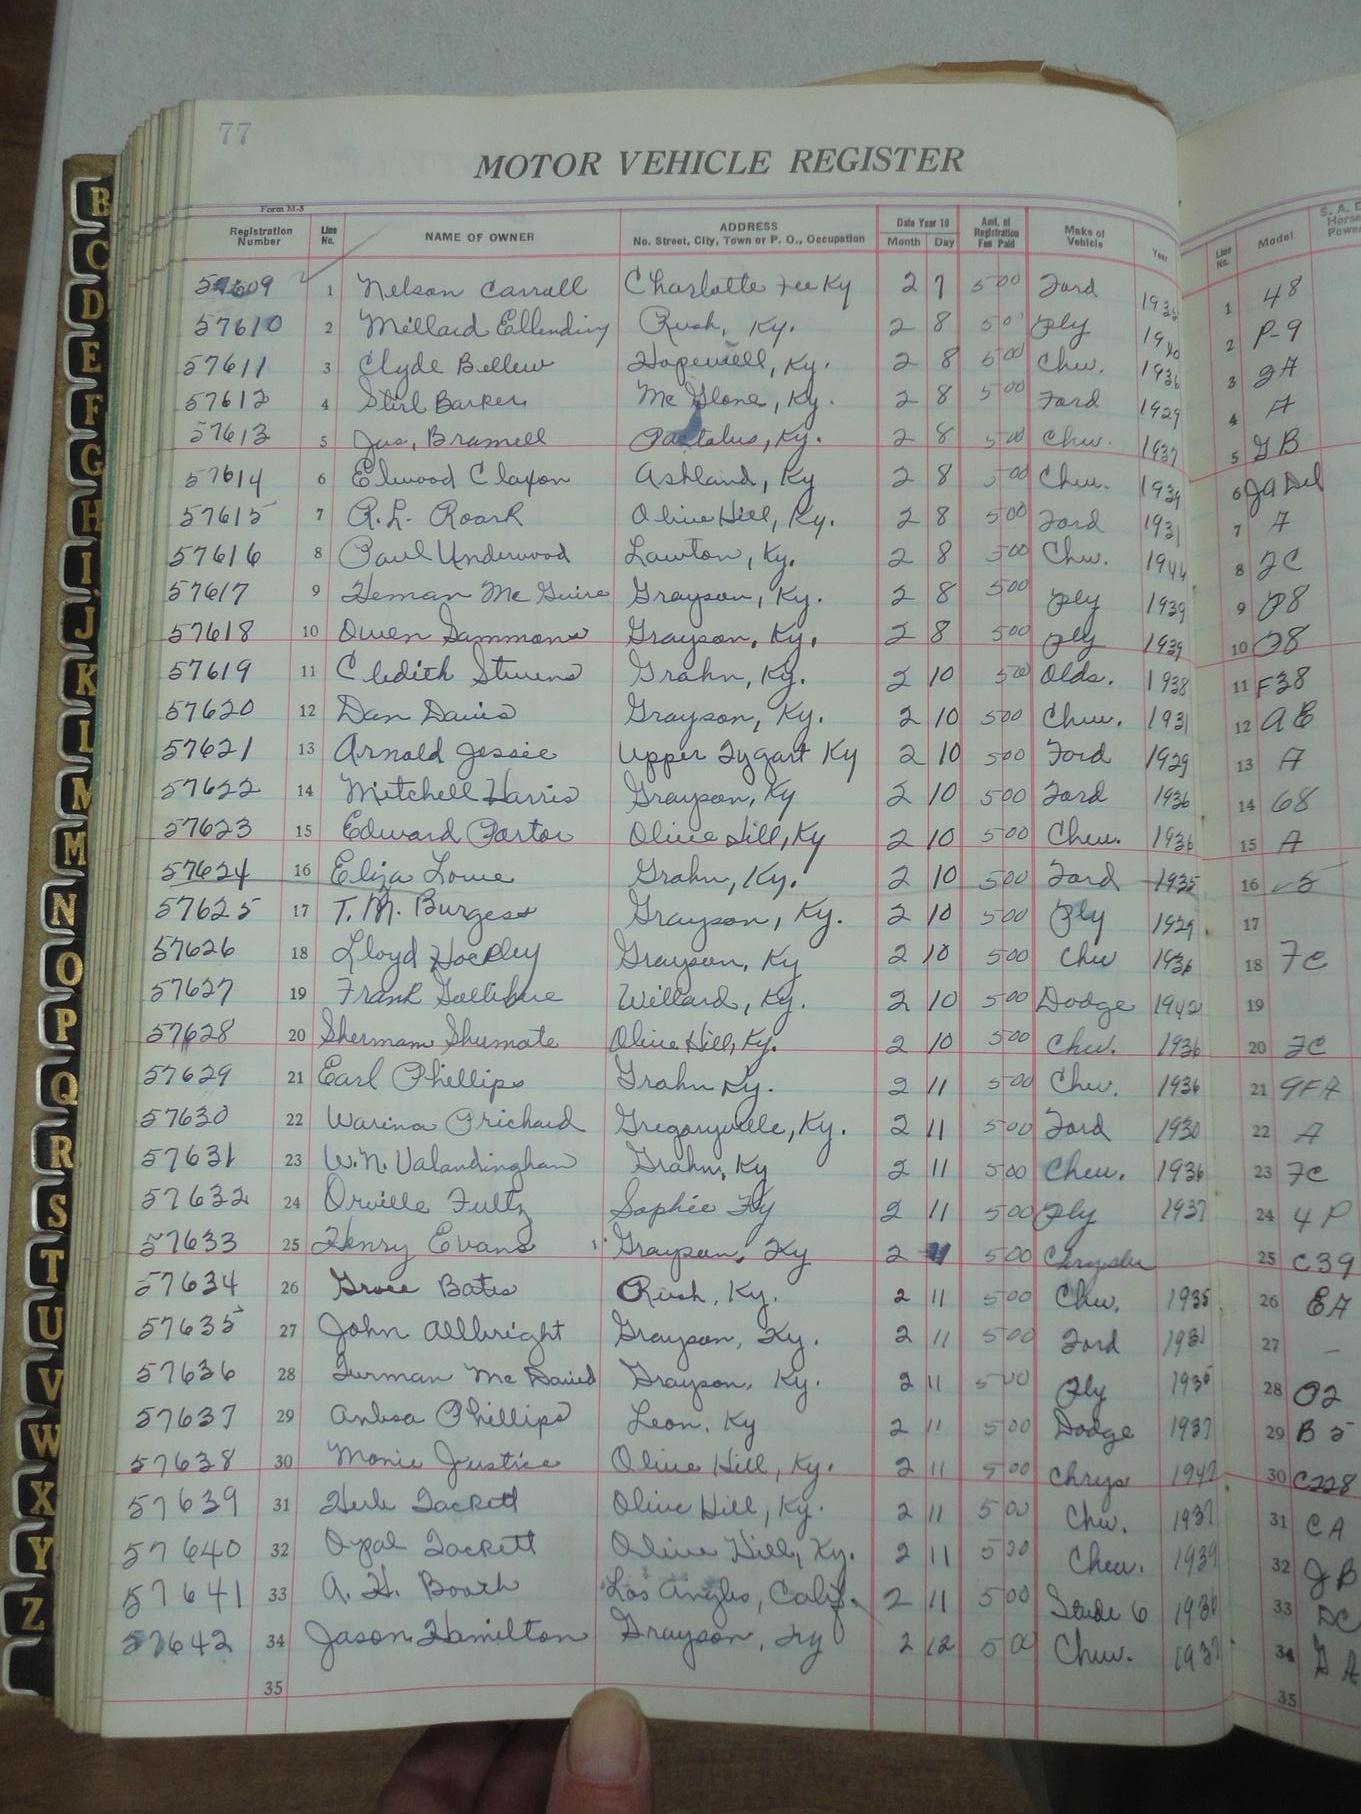 77
MOTOR VEHICLE REGISTER
Form M-5
Registration Number Line No. NAME OF OWNER ADDRESS No. Street, City, Town or P. O., Occupation Date Year 19 Month Day Amt. of Registration Fee Paid Make of Vehicle Year Line No. Model S. A. E. Horse Power
57609 1 Nelson Carroll Charlotte Fee Ky 2 7 5 00 Ford 1 48
57610 2 Millard Rush, Ky. 2 8 5 0 Ply 1940 2 P-9
57611 3 Clyde Bellew Hopewell, Ky. 2 8 5 00 Chev. 1936 3
57612 4 Stirl Barker Mc Glone, Ky. 2 8 5 00 Ford 1929 4 A
57613 5 Jas, Bramell Pactolus, Ky. 2 8 5 00 Chev. 1937 5 GB
57614 6 Elwood Claxon Ashland, Ky 2 8 5 00 Chev. 1939 6
57615 7 R. L. Roark Olive Hill, Ky. 2 8 5 00 Ford 1931 7 A
57616 8 Paul Underwood Lawton, Ky. 2 8 5 00 Chev. 8
57617 9 Heman Mc Guire Grayson, Ky. 2 8 5 00 Ply 1939 9 P8
57618 10 Owen Sammons Grayson, Ky. 2 8 5 00 Ply 1939 10 P8
57619 11 Cledith Stevens Grahn, Ky. 2 10 5 00 Olds. 1938 11 F38
57620 12 Dan Davis Grayson, Ky. 2 10 5 00 Chev. 1931 12 AE
57621 13 Arnold Jessie Upper Tygart Ky 2 10 5 00 Ford 1929 13 A
57622 14 Mitchell Harris Grayson, Ky 2 10 5 00 Ford 1936 14 68
57623 15 Edward Porter Olive Hill, Ky 2 10 5 00 Chev. 1936 15 A
57624 16 Eliza Lowe Grahn, Ky. 2 10 5 00 Ford 1935 16
57625 17 T. M. Burgess Grayson, Ky. 2 10 5 00 Ply 1929 17
57626 18 Lloyd Grayson, Ky 2 10 5 00 Chev 1936 18 FC
57627 19 Frank Willard, Ky. 2 10 5 00 Dodge 1942 19
57628 20 Sherman Shumate Olive Hill, Ky. 2 10 5 00 Chev. 1936 20 FC
57629 21 Earl Phillips Grahn Ky. 2 11 5 00 Chev. 1936 21
57630 22 Prichard Gregoryville, Ky. 2 11 5 00 Ford 1930 22 A
57631 23 W. N. Valandingham Grahn, Ky 2 11 5 00 Chev. 1936 23 FC
57632 24 Orville Fultz Sophie Ky 2 11 5 00 Ply 1937 24 4 P
57633 25 Henry Evans Grayson, Ky 2 11 5 00 Chrysler 25 C39
57634 26 Bates Rush, Ky. 2 11 5 00 Chev. 1935 26 EA
57635 27 John Allbright Grayson, Ky. 2 11 5 00 Ford 1931 27 -
57636 28 Furman Mc David Grayson, Ky. 2 11 5 00 Ply 28 P2
57637 29 Phillips Leon, Ky 2 11 5 00 Dodge 1937 29 B 5
57638 30 Monie Justice Olive Hill, Ky. 2 11 5 00 Chrys 1947 30 C228
57639 31 Herb Tackett Olive Hill, Ky. 2 11 5 00 Chev. 1937 31 CA
57640 32 Opal Tackett Olive Hill, Ky. 2 11 5 00 Chev. 1939 32 JB
57641 33 A. H. Booth Los Angles, Calif. 2 11 5 00 Stude 6 1936 33 DC
57642 34 Jason Hamilton Grayson, Ky 2 12 5 00 Chev. 1937 34 G A
35 35
B
C
D
E
F
G
H
I
J
K
L
M
M
N
O
P
Q
R
S
T
U
V
W
X
Y
Z